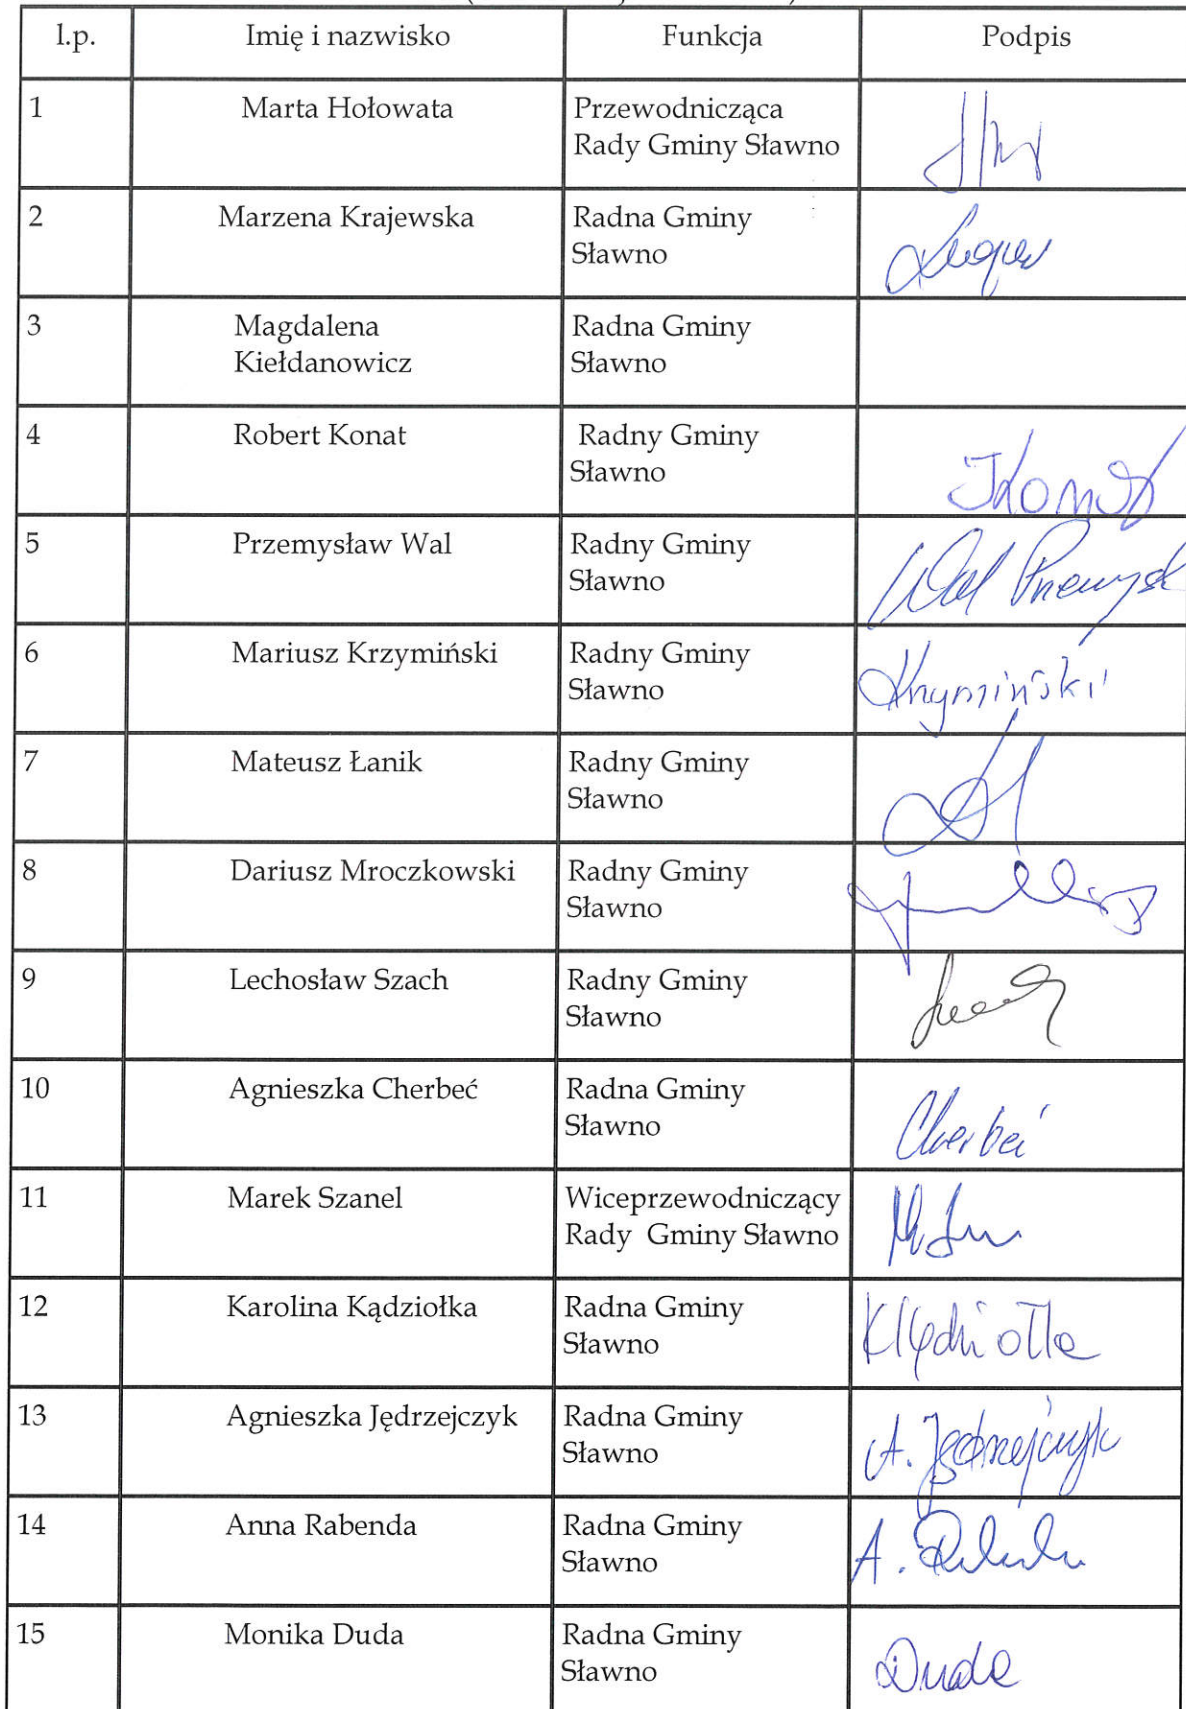 l.p. Imię i nazwisko Funkcja Podpis
1 Marta Hołowata Przewodnicząca
Rady Gminy Sławno
2 Marzena Krajewska Radna Gminy
Sławno
3 Magdalena Radna Gminy
Kiełdanowicz Sławno
4 Robert Konat Radny Gminy
Sławno
5 Przemysław Wal Radny Gminy
Sławno Wal
6 Mariusz Krzymiński Radny Gminy
Sławno Krzymiński
7 Mateusz Łanik Radny Gminy
Sławno
8 Dariusz Mroczkowski Radny Gminy
Sławno
9 Lechosław Szach Radny Gminy
Sławno
10 Agnieszka Cherbeć Radna Gminy
Sławno Cherbeć
11 Marek Szanel Wiceprzewodniczący
Rady Gminy Sławno
12 Karolina Kądziołka Radna Gminy
Sławno
13 Agnieszka Jędrzejczyk Radna Gminy
Sławno A. Jędrzejczyk
14 Anna Rabenda Radna Gminy
Sławno
15 Monika Duda Radna Gminy
Sławno Duda